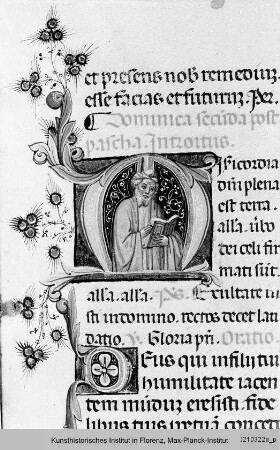 et presens nob remedium.
esse facias et futurum. Per.
Dominica secunda post
pascha. Introitus.
Misericordia
dni plena
est terra.
alla. ubo
dei celi fir
mati sūt.
alla. alla. Ps. Exultate iu
sti in domino. rectos decet lau
datio. V. Gloria pri. Oratio.
Deus qui in filii tui
humilitate iacen
tem mūdum erexisti. fide
libus tuis
Kunsthistorisches Institut in Florenz, Max-Planck-Institut